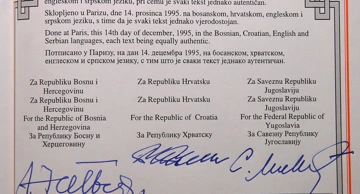 engleskom i srpskom jeziku, pri čemu je svaki tekst jednako autentičan.
Sklopljeno u Parizu, dne 14. prosinca 1995. na bosanskom, hrvatskom, engleskom i
srpskom jeziku, s time da je svaki tekst jednako vjerodostojan.
Done at Paris, this 14th day of december, 1995, in the Bosnian, Croatian, English and
Serbian languages, each text being equally authentic.
Потписано у Паризу, на дан 14. децембра 1995, на босанском, хрватском,
енглеском и српском језику, с тим што је сваки текст једнако аутентичан.
Za Republiku Bosnu i
Hercegovinu
For the Republic of Bosnia
and Herzegovina
За Републику Босну и
Херцеговину
Za Republiku Hrvatsku
Za Republiku Hrvatsku
For the Republic of Croatia
За Републику Хрватску
Za Saveznu Republiku
Jugoslaviju
Za Saveznu Republiku
Jugoslaviju
For the Federal Republic of
Yugoslavia
За Савезну Републику
Југославију